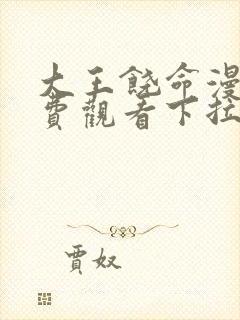 大王饶命漫
费观看下拉
贾奴